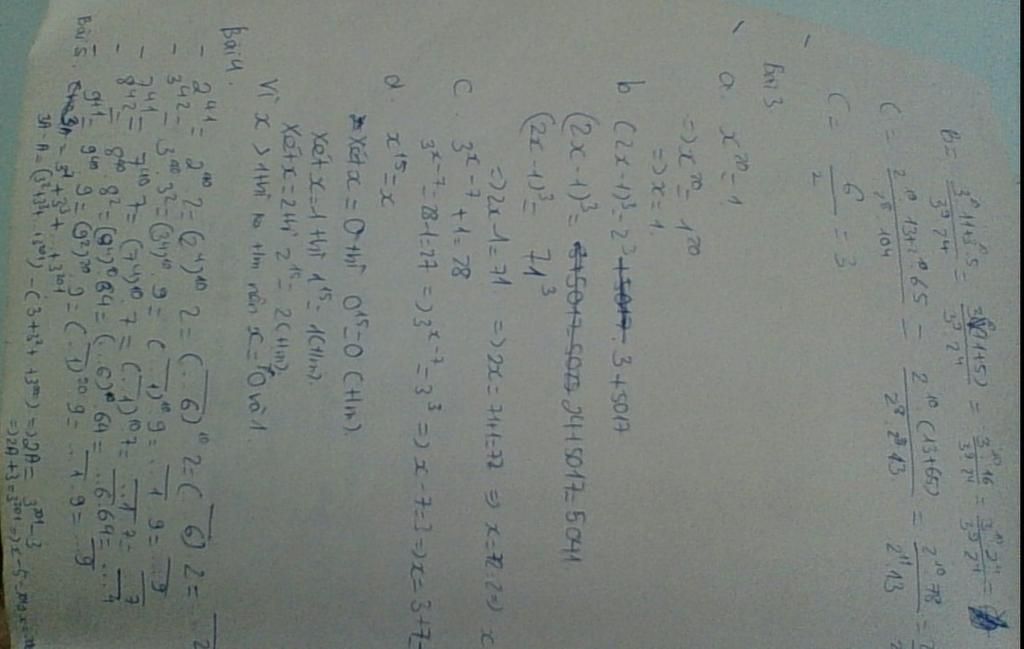 B = 3^10.11+3^10.5 / 3^9.2^4 = 3^10(11+5) / 3^9.2^4 = 3^10.16 / 3^9.2^4 = 3^10.2^4 / 3^9.2^4 =
C = 2^10.13+2^10.65 / 2^8.104 = 2^10.(13+65) / 2^8.2^3.13 = 2^10.78 / 2^11.13
C = 6/2 = 3
Bài 3
a. x^20 = 1
=> x^20 = 1^20
=> x = 1.
b (2x-1)^3 = 2^3.3+5017
(2x-1)^3 = 24+5017=5041
(2x-1)^3 = 71^3
=> 2x-1=71 => 2x=71+1=72 => x=72:2=> x
c. 3^x-7 +1=28
3^x-7=28-1=27 => 3^x-7=3^3 => x-7=3 => x=3+7=
d. x^15=x
Xét x=0 thì 0^15=0 (t/m).
Xét x=1 thì 1^15=1(t/m).
Xét x=2 thì 2^15=2(t/m).
Vì x>1 thì ko t/m nên x=0 và 1.
Bài 4.
- 2^41= 2^40.2=(2^4)^10.2=(...6)^10.2=(...6).2=...2
- 3^42= 3^40.3^2=(3^4)^10.9=(...1)^10.9=...1.9=...9
- 7^41= 7^40.7=(7^4)^10.7=(...1)^10.7=...1.7=...7
- 8^42= 8^40.8^2=(8^4)^10.64=(...6)^10.64=...6.64=...4
- 9^41= 9^40.9=(9^2)^20.9=(...1)^20.9=...1.9=...9
Bài 5. 3A=3^2+3^3+...+3^201
3A-A=(3^2+3^3+...+3^201)-(3+3^2+...+3^200)=>2A=3^201-3
=>2A+3=3^201=>x-5=